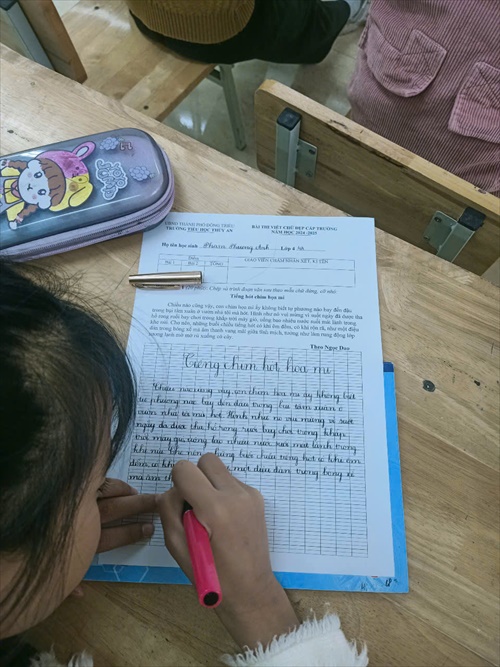 UBND THÀNH PHỐ ĐÔNG TRIỀU
TRƯỜNG TIỂU HỌC THỦY AN
BÀI THI VIẾT CHỮ ĐẸP CẤP TRƯỜNG
NĂM HỌC 2024 - 2025
Họ tên học sinh Phạm Phương Anh . Lớp
Điểm
GIÁO VIÊN CHẤM NHẬN XÉT, KÍ TÊN
Bài 1
Chép và trình bày đoạn văn sau theo mẫu chữ đứng, cỡ nhỏ:
Tiếng chim hót họa mi
Chiều nào cũng vậy, con chim họa mi ấy không biết tự phương nào bay đến đậu
trong bụi tầm xuân ở vườn nhà tôi mà hót. Hình như nó vui mừng vì suốt ngày đã được tha
hồ rong ruổi bay chơi trong khắp trời mây gió, uống bao nhiêu nước suối mát lành trong
khe núi. Cho nên, những buổi chiều tiếng hót có khi êm đềm, có khi rộn rã, như một điệu
đàn trong bóng xế mà âm thanh vang mãi giữa tĩnh mịch, tưởng như làm rung động lớp
sương lạnh mờ mờ rủ xuống cỏ cây.
Theo Ngọc Dao
Tiếng chim hót họa mi
Chiều nào cũng vậy, con chim họa mi ấy không biết
tự phương nào bay đến đậu trong bụi tầm xuân ở
vườn nhà tôi mà hót. Hình như nó vui mừng vì suốt
ngày đã được tha hồ rong ruổi bay chơi trong khắp
trời mây gió, uống bao nhiêu nước suối mát lành trong
khe núi. Cho nên, những buổi chiều tiếng hót có khi êm
đềm, có khi một điệu đàn trong bóng xế
mà âm